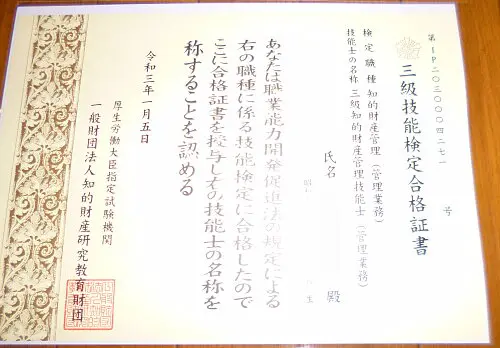 三級技能検定合格証書
第1P203000427号
検定職種 知的財産管理(管理業務)
技能士の名称 三級知的財産管理技能士(管理業務)
氏名
殿
昭
生
あなたは職業能力開発促進法の規定による
右の職種に係る技能検定に合格したので
ここに合格証書を授与し右の技能士の名称を
称することを認める
令和三年一月五日
厚生労働大臣指定試験機関
一般財団法人知的財産研究教育財団